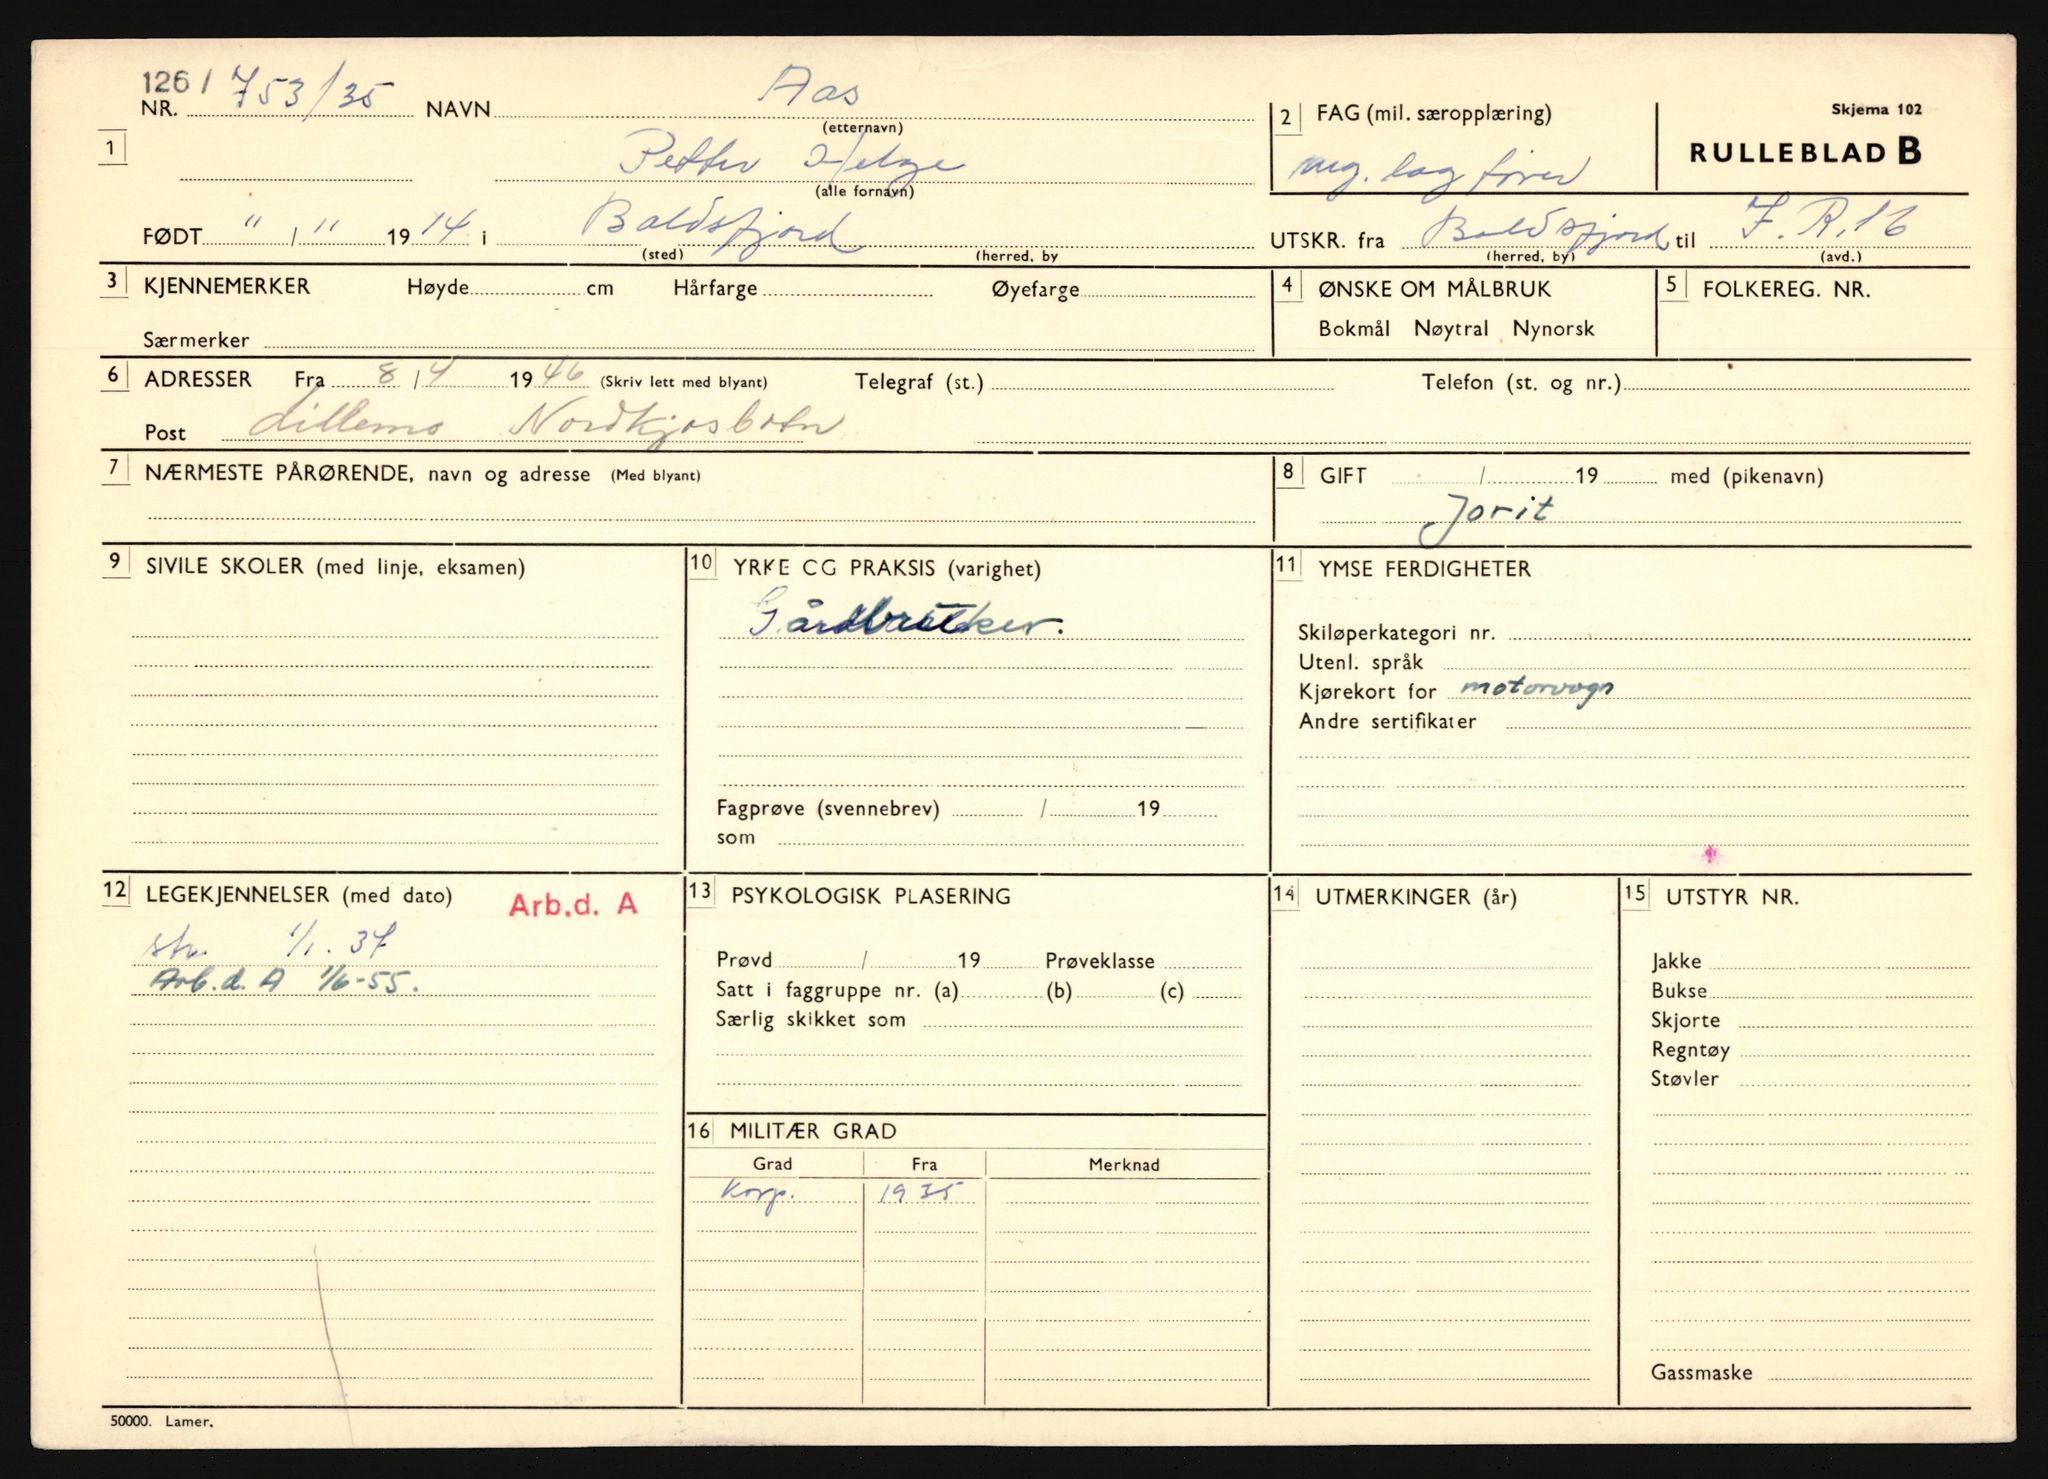 126/ 753/35 NAVN Aas
NR. (etternavn)
1 Petter Helge
(alle fornavn)
FØDT " / " 1914 i Baldsfjord
(sted) (herred, by
2 FAG (mil. særopplæring)
mg. lagfører
Skjema 102
RULLEBLAD B
UTSKR. fra Baldsfjord til I. R. 16
(herred, by) (avd.)
3 KJENNEMERKER Høyde cm Hårfarge Øyefarge
Særmerker
4 ØNSKE OM MÅLBRUK
Bokmål Nøytral Nynorsk
5 FOLKEREG. NR.
6 ADRESSER Fra 8/4 1946 (Skriv lett med blyant) Telegraf (st.) Telefon (st. og nr.)
Post Lillemo Nordkjosbotn
7 NÆRMESTE PÅRØRENDE, navn og adresse (Med blyant)
8 GIFT / 19 med (pikenavn)
Jorit
9 SIVILE SKOLER (med linje, eksamen)
10 YRKE CG PRAKSIS (varighet)
Gårdbruker.
Fagprøve (svennebrev) / 19
som
11 YMSE FERDIGHETER
Skiløperkategori nr.
Utenl. språk
Kjørekort for motorvogn
Andre sertifikater
12 LEGEKJENNELSER (med dato) Arb.d. A
stv. 1/1. 37
Arb. d. A 1/6-55.
13 PSYKOLOGISK PLASERING
Prøvd / 19 Prøveklasse
Satt i faggruppe nr. (a) (b) (c)
Særlig skikket som
14 UTMERKINGER (år)
15 UTSTYR NR.
Jakke
Bukse
Skjorte
Regntøy
Støvler
Gassmaske
16 MILITÆR GRAD
Grad Fra Merknad
Korp. 1935
50000. Lamer.